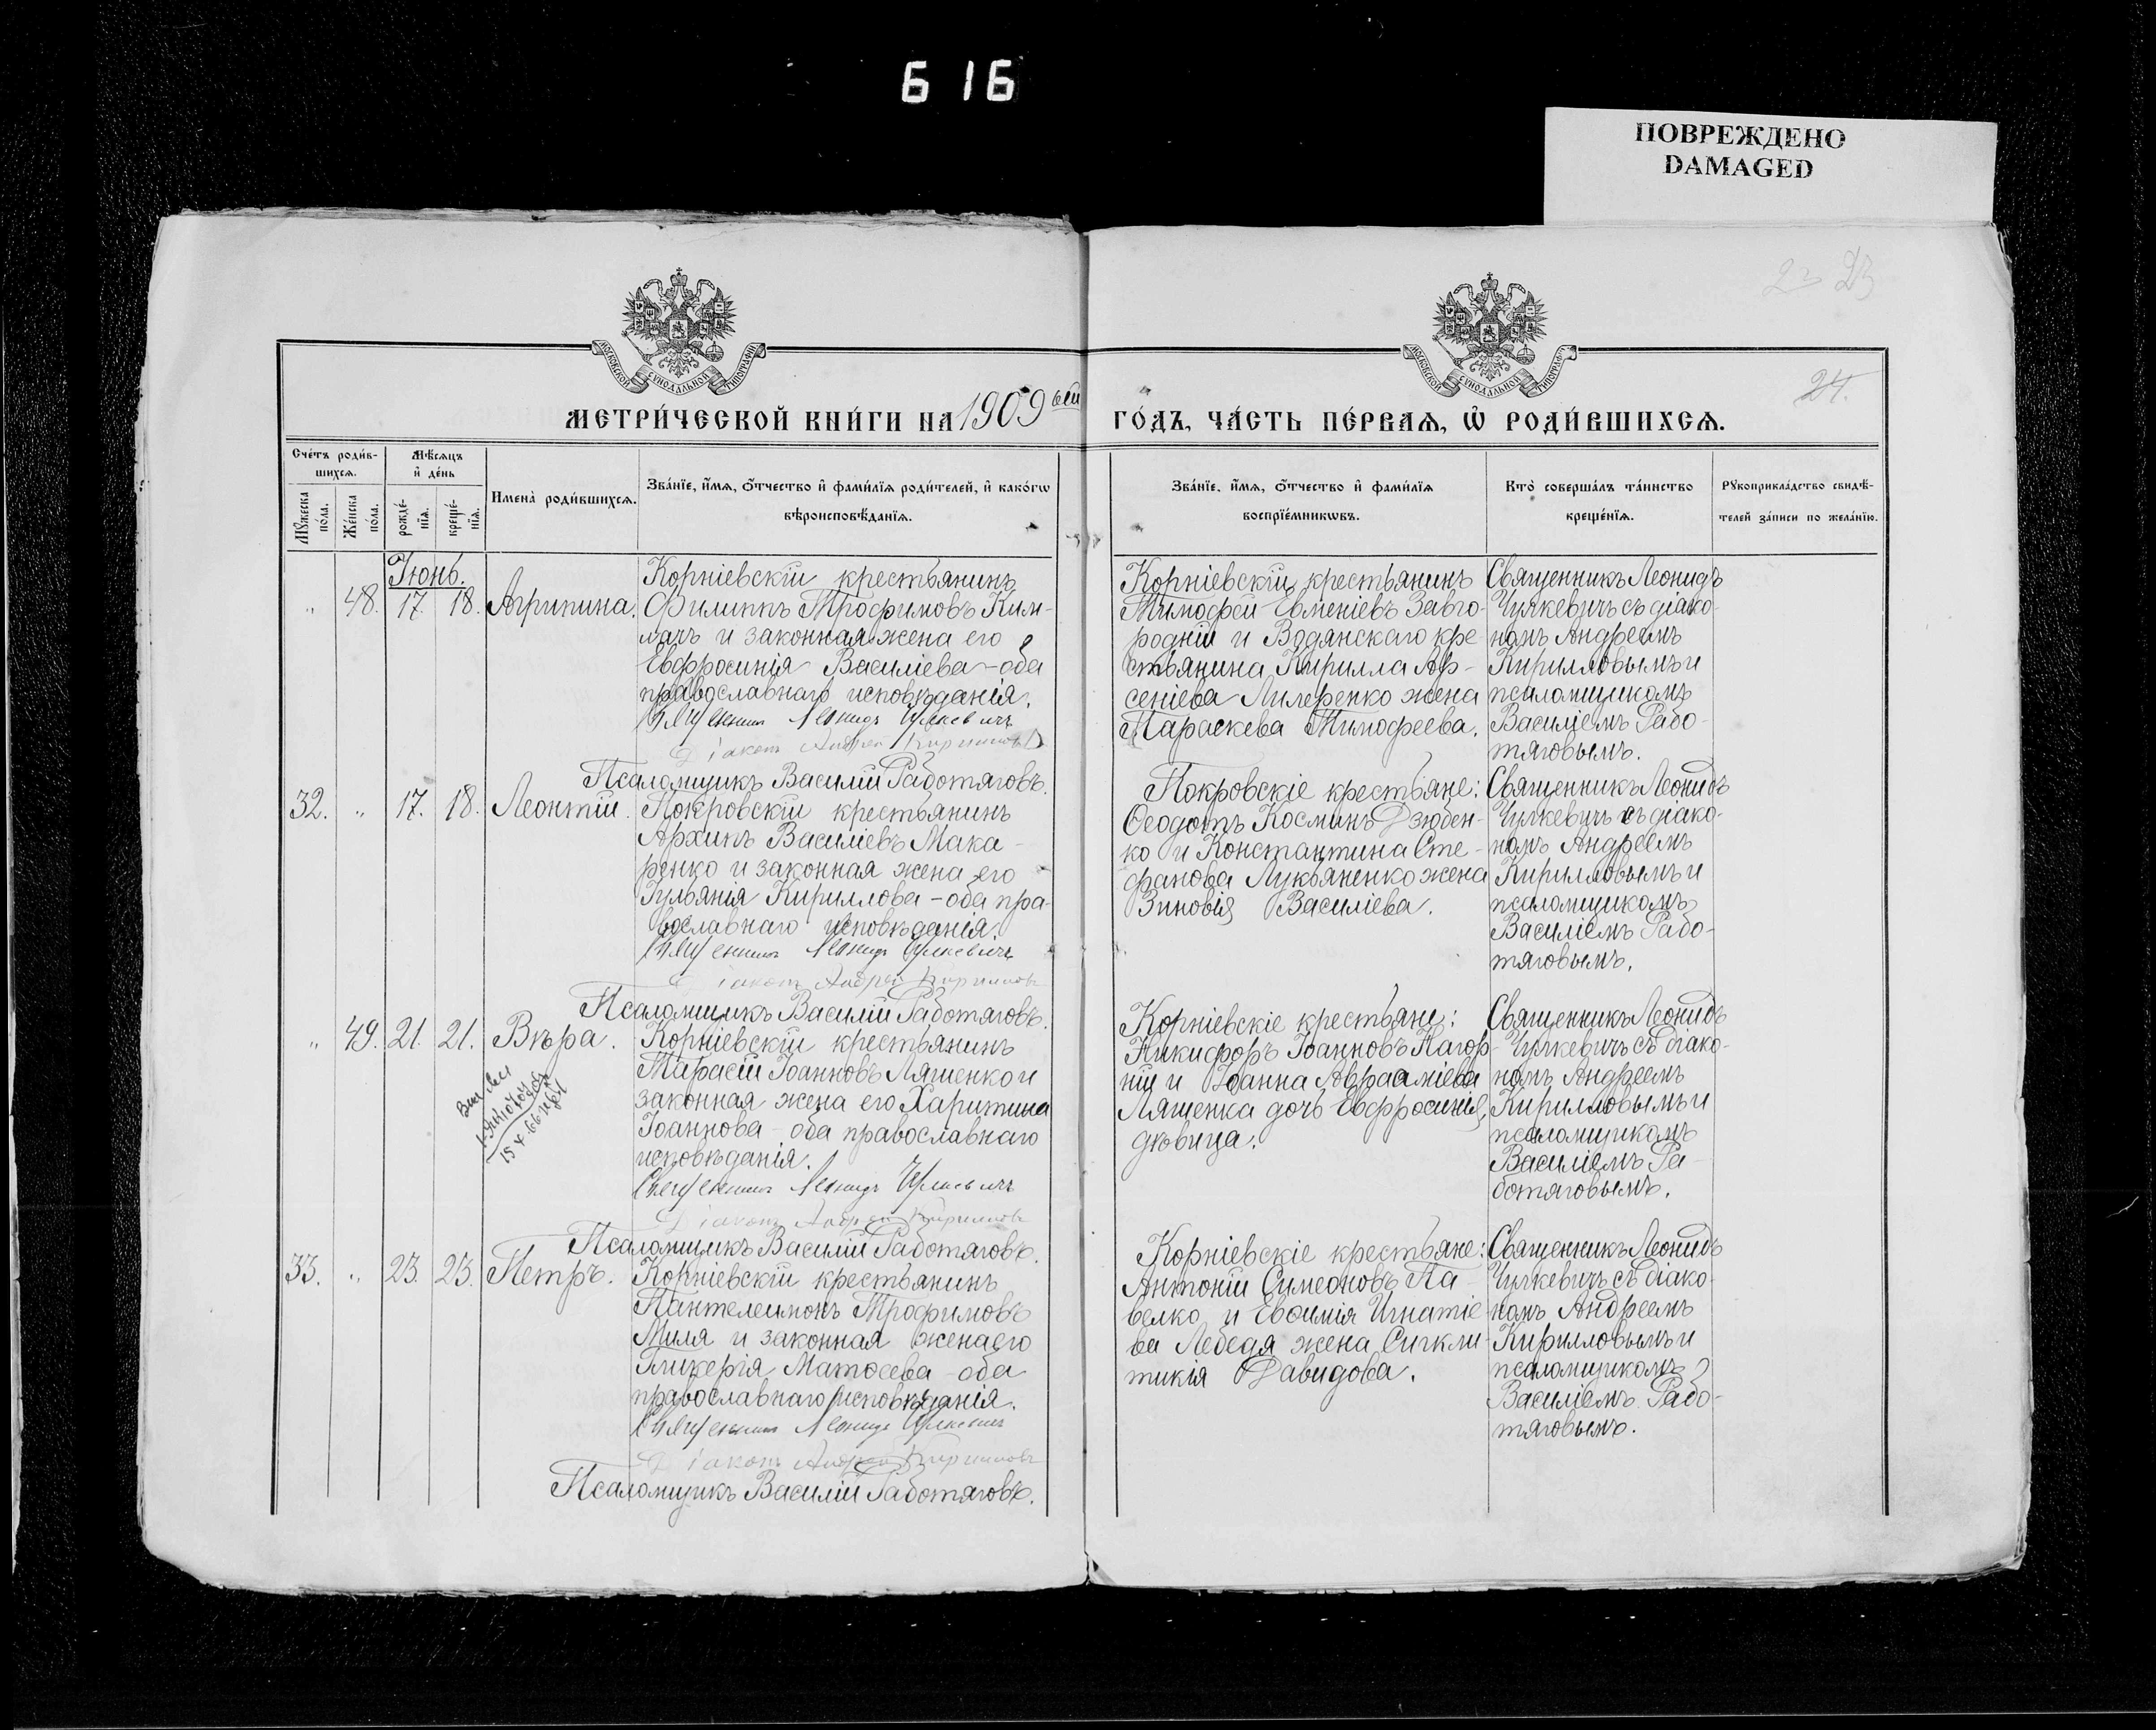 6 16
ПОВРЕЖДЕНО
DAMAGED
23
24.
МОСКОВСКОЙ СѴНОДАЛЬНОЙ ТИПОГРАФІИ
МОСКОВСКОЙ СѴНОДАЛЬНОЙ ТИПОГРАФІИ
МЕТРИ́ЧЕСКОЙ КНИ́ГИ НА 1909 ый
ГО́ДЪ, ЧА́СТЬ ПЕ́РВАЯ, Ѡ҆ РОДИ́ВШИХСЯ.
Сче́тъ роди́в-
шихся.
Мѣ́сяцъ
и҆ де́нь
Му́жеска
по́ла.
Же́нска
по́ла.
рожде́-
нїя.
креще́-
нїя.
Имена̀ роди́вшихся.
Зва́нїе, и҆́мя, ѻ҆́тчество и҆ фами́лїя роди́телей, и҆ како́гѡ
вѣроисповѣ́данїя.
Зва́нїе, и҆́мя, ѻ҆́тчество и҆ фами́лїя
воспрїе́мникѡвъ.
Кто̀ соверша́лъ та́инство
креще́нїя.
Рꙋкоприкла́дство свидѣ́-
телей за́писи по жела́нїю.
Іюнь.
„ 48. 17. 18. Агрипина.
Корніевскій крестьянинъ
Филиппъ Трофимовъ Ким-
лачъ и законная жена его
Евфросинія Василіева - оба
православнаго исповѣданія.
Священникъ Леонидъ Чулкевичъ
Діаконъ Андрей Кирилловъ
Псаломщикъ Василій Работяговъ.
Корніевскій крестьянинъ
Тимофей Евменіевъ Завго-
родній и Водянскаго кре
стьянина Кирилла Ар-
сеніева Лилеренко жена
Параскева Тимофеева.
Священникъ Леонидъ
Чулкевичъ съ діако-
номъ Андреемъ
Кирилловымъ и
псаломщикомъ
Василіемъ Рабо-
тяговымъ.
32. „ 17. 18. Леонтій.
Покровскій крестьянинъ
Архипъ Василіевъ Мака-
ренко и законная жена его
Іуліанія Кириллова - оба пра-
вославнаго исповѣданія.
Священникъ Леонидъ Чулкевичъ
Діаконъ Андрей Кирилловъ
Псаломщикъ Василій Работяговъ.
Покровскіе крестьяне:
Ѳеодотъ Косминъ Дзюбен-
ко и Константина Сте-
фанова Лукьяненко жена
Зиновія Василіева.
Священникъ Леонидъ
Чулкевичъ съ діако-
номъ Андреемъ
Кирилловымъ и
псаломщикомъ
Василіемъ Рабо-
тяговымъ.
„ 49. 21. 21. Вѣра.
Корніевскій крестьянинъ
Тарасій Іоанновъ Ляшенко и
законная жена его Харитина
Іоаннова - оба православнаго
исповѣданія.
Священникъ Леонидъ Чулкевичъ
Діаконъ Андрей Кирилловъ
Псаломщикъ Василій Работяговъ.
Корніевскіе крестьяне:
Никифоръ Іоанновъ Нагор-
ній и Іоанна Аврааміева
Ляшенка дочь Евфросинія,
дѣвица.
Священникъ Леонидъ
Чулкевичъ съ діако-
номъ Андреемъ
Кирилловымъ и
псаломщикомъ
Василіемъ Ра-
ботяговымъ.
33. „ 23. 23. Петръ.
Корніевскій крестьянинъ
Пантелеимонъ Трофимовъ
Миля и законная жена его
Гликерія Матѳеева - оба
православнаго исповѣданія.
Священникъ Леонидъ Чулкевичъ
Діаконъ Андрей Кирилловъ
Псаломщикъ Василій Работяговъ.
Корніевскіе крестьяне:
Антоній Симеоновъ Па-
велко и Евѳимія Игнатіе
ва Лебедя жена Сигкли-
тикія Давидова.
Священникъ Леонидъ
Чулкевичъ съ діако-
номъ Андреемъ
Кирилловымъ и
псаломщикомъ
Василіемъ Рабо-
тяговымъ.